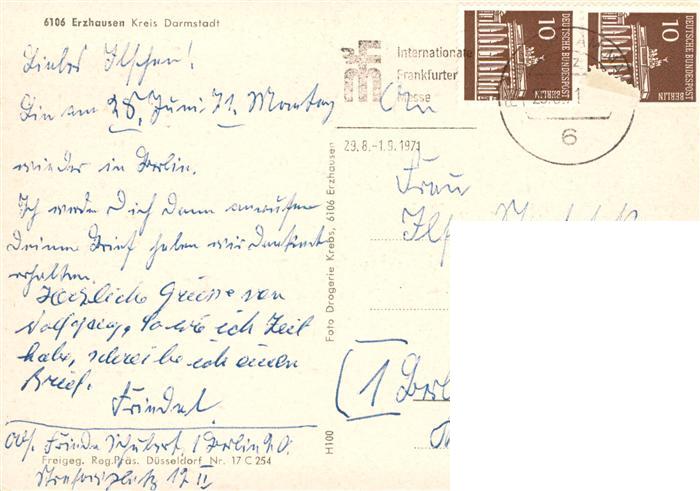 6106 Erzhausen Kreis Darmstadt
Liebes Ilschen!
Bin am 28. Juni 71. Montag
wieder in Berlin.
Ich werde Dich dann anrufen
Deinen Brief haben wir dankend
erhalten.
Herzliche Grüsse von
Wolfgang, so wie ich Zeit
habe, schreibe ich einen
Brief.
Friedel.
Abs. Frieda Schubert, 1 Berlin 20.
17 II
Freigeg. Reg.Präs. Düsseldorf Nr. 17 C 254
H100
Foto Drogerie Krebs, 6106 Erzhausen
Internationale
Frankfurter
Messe
29.8.-1.9.1971
10
DEUTSCHE BUNDESPOST
BERLIN
10
DEUTSCHE BUNDESPOST
BERLIN
6
An
Frau
Ilse
(1 Berl